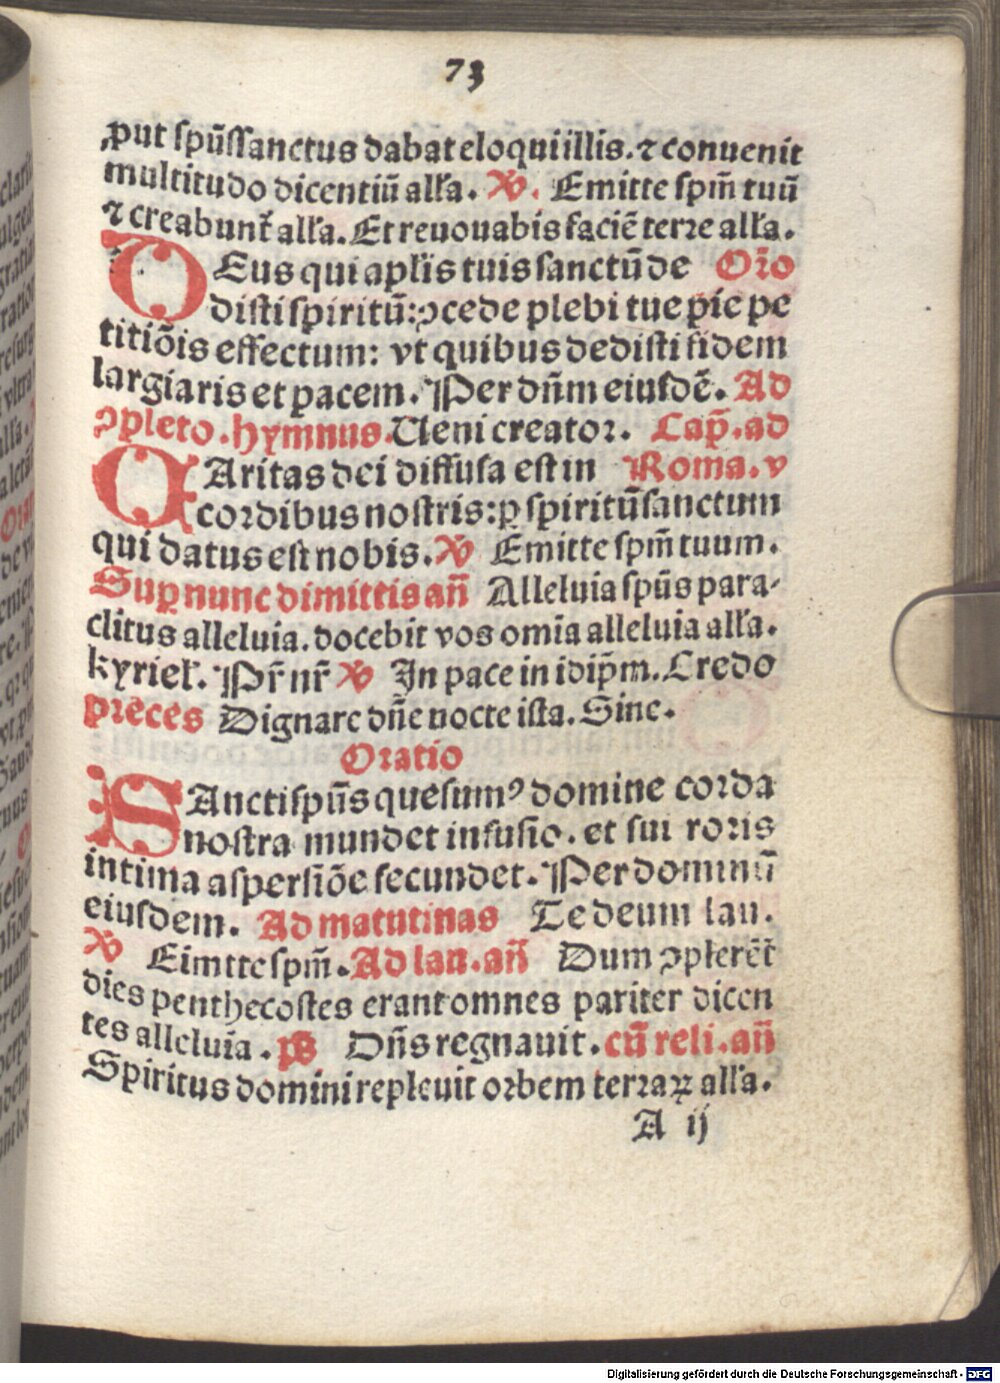 73
ꝓut spūssanctus dabat eloqui illis. ⁊ conuenit
multitudo dicentiū alła. ℣. Emitte spm̄ tuū
⁊ creabunt᷑ alła. Et reuouabis faciē terre alła.
DEus qui apłis tuis sanctū de Orō
disti spiritū: ꝯcede plebi tue pie pe
titiōis effectum: vt quibus dedisti fidem
largiaris et pacem. Per dn̄m eiusdē. Ad
ꝯpleto. hymnus. Ueni creator. Cap̄. ad
CAritas dei diffusa est in Roma. v
cordibus nostris: ꝑ spiritūsanctum
qui datus est nobis. ℣ Emitte spm̄ tuum.
Suꝑ nunc dimittis an̄ Alleluia spūs para-
clitus alleluia. docebit vos omīa alleluia alła.
kyrieł. Pr̄ nr̄ ℣ In pace in idip̄m. Credo
preces Dignare dn̄e nocte ista. Sine.
Oratio
SAncti spūs quesumꝰ domine corda
nostra mundet infusio. et sui roris
intima aspersiōe fecundet. Per dominū
eiusdem. Ad matutinas Te deum lau.
℣ Eimtte spm̄. Ad lau. an̄ Dum ꝯplerēt᷑
dies penthecostes erant omnes pariter dicen
tes alleluia. ps Dn̄s regnauit. cū reli. an̄
Spiritus domini repleuit orbem terraꝝ alła.
A ij
Digitalisierung gefördert durch die Deutsche Forschungsgemeinschaft - DFG